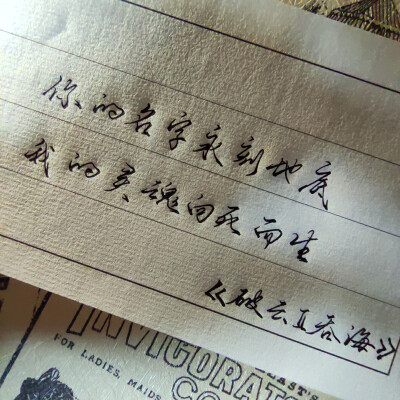 你的名字永刻地底
我的灵魂向死而生
《破云Ⅱ吞海》
INVIGORAT
FOR LADIES, MAIDS
CO